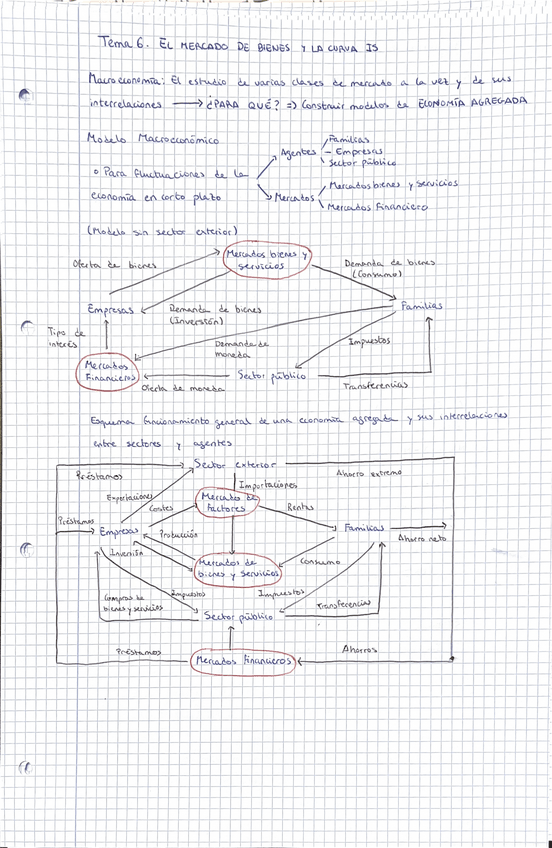 Tema 6. EL MERCADO DE BIENES Y LA CURVA IS
Macroeconomía: El estudio de varias clases de mercado a la vez y de sus
interrelaciones ⟶ ¿PARA QUÉ? => Construir modelos de ECONOMÍA AGREGADA
Modelo Macroeconómico
Agentes
Familias
- Empresas
Sector público
o Para fluctuaciones de la
economía en corto plazo
Mercados
Mercados bienes y servicios
Mercados Financiero
(Modelo sin sector exterior)
Oferta de bienes
Mercados bienes y
servicios
Demanda de bienes
(Consumo)
Empresas
Demanda de bienes
(Inversión)
Familias
Tipo de
interés
Demanda de
moneda
Impuestos
Mercados
Financieros
Oferta de moneda
Sector público
Transferencias
Esquema funcionamiento general de una economía agregada y sus interrelaciones
entre sectores y agentes
Sector exterior
Préstamos
Ahorro extremo
Exportaciones
Importaciones
Costes
Mercado de
factores
Rentas
Préstamos
Empresas
Producción
Familias
Ahorro neto
Inversión
Mercados de
bienes y servicios
Consumo
Compras de
bienes y servicios
Impuestos
Impuestos
Transferencias
Sector público
Préstamos
Mercados Financieros
Ahorros